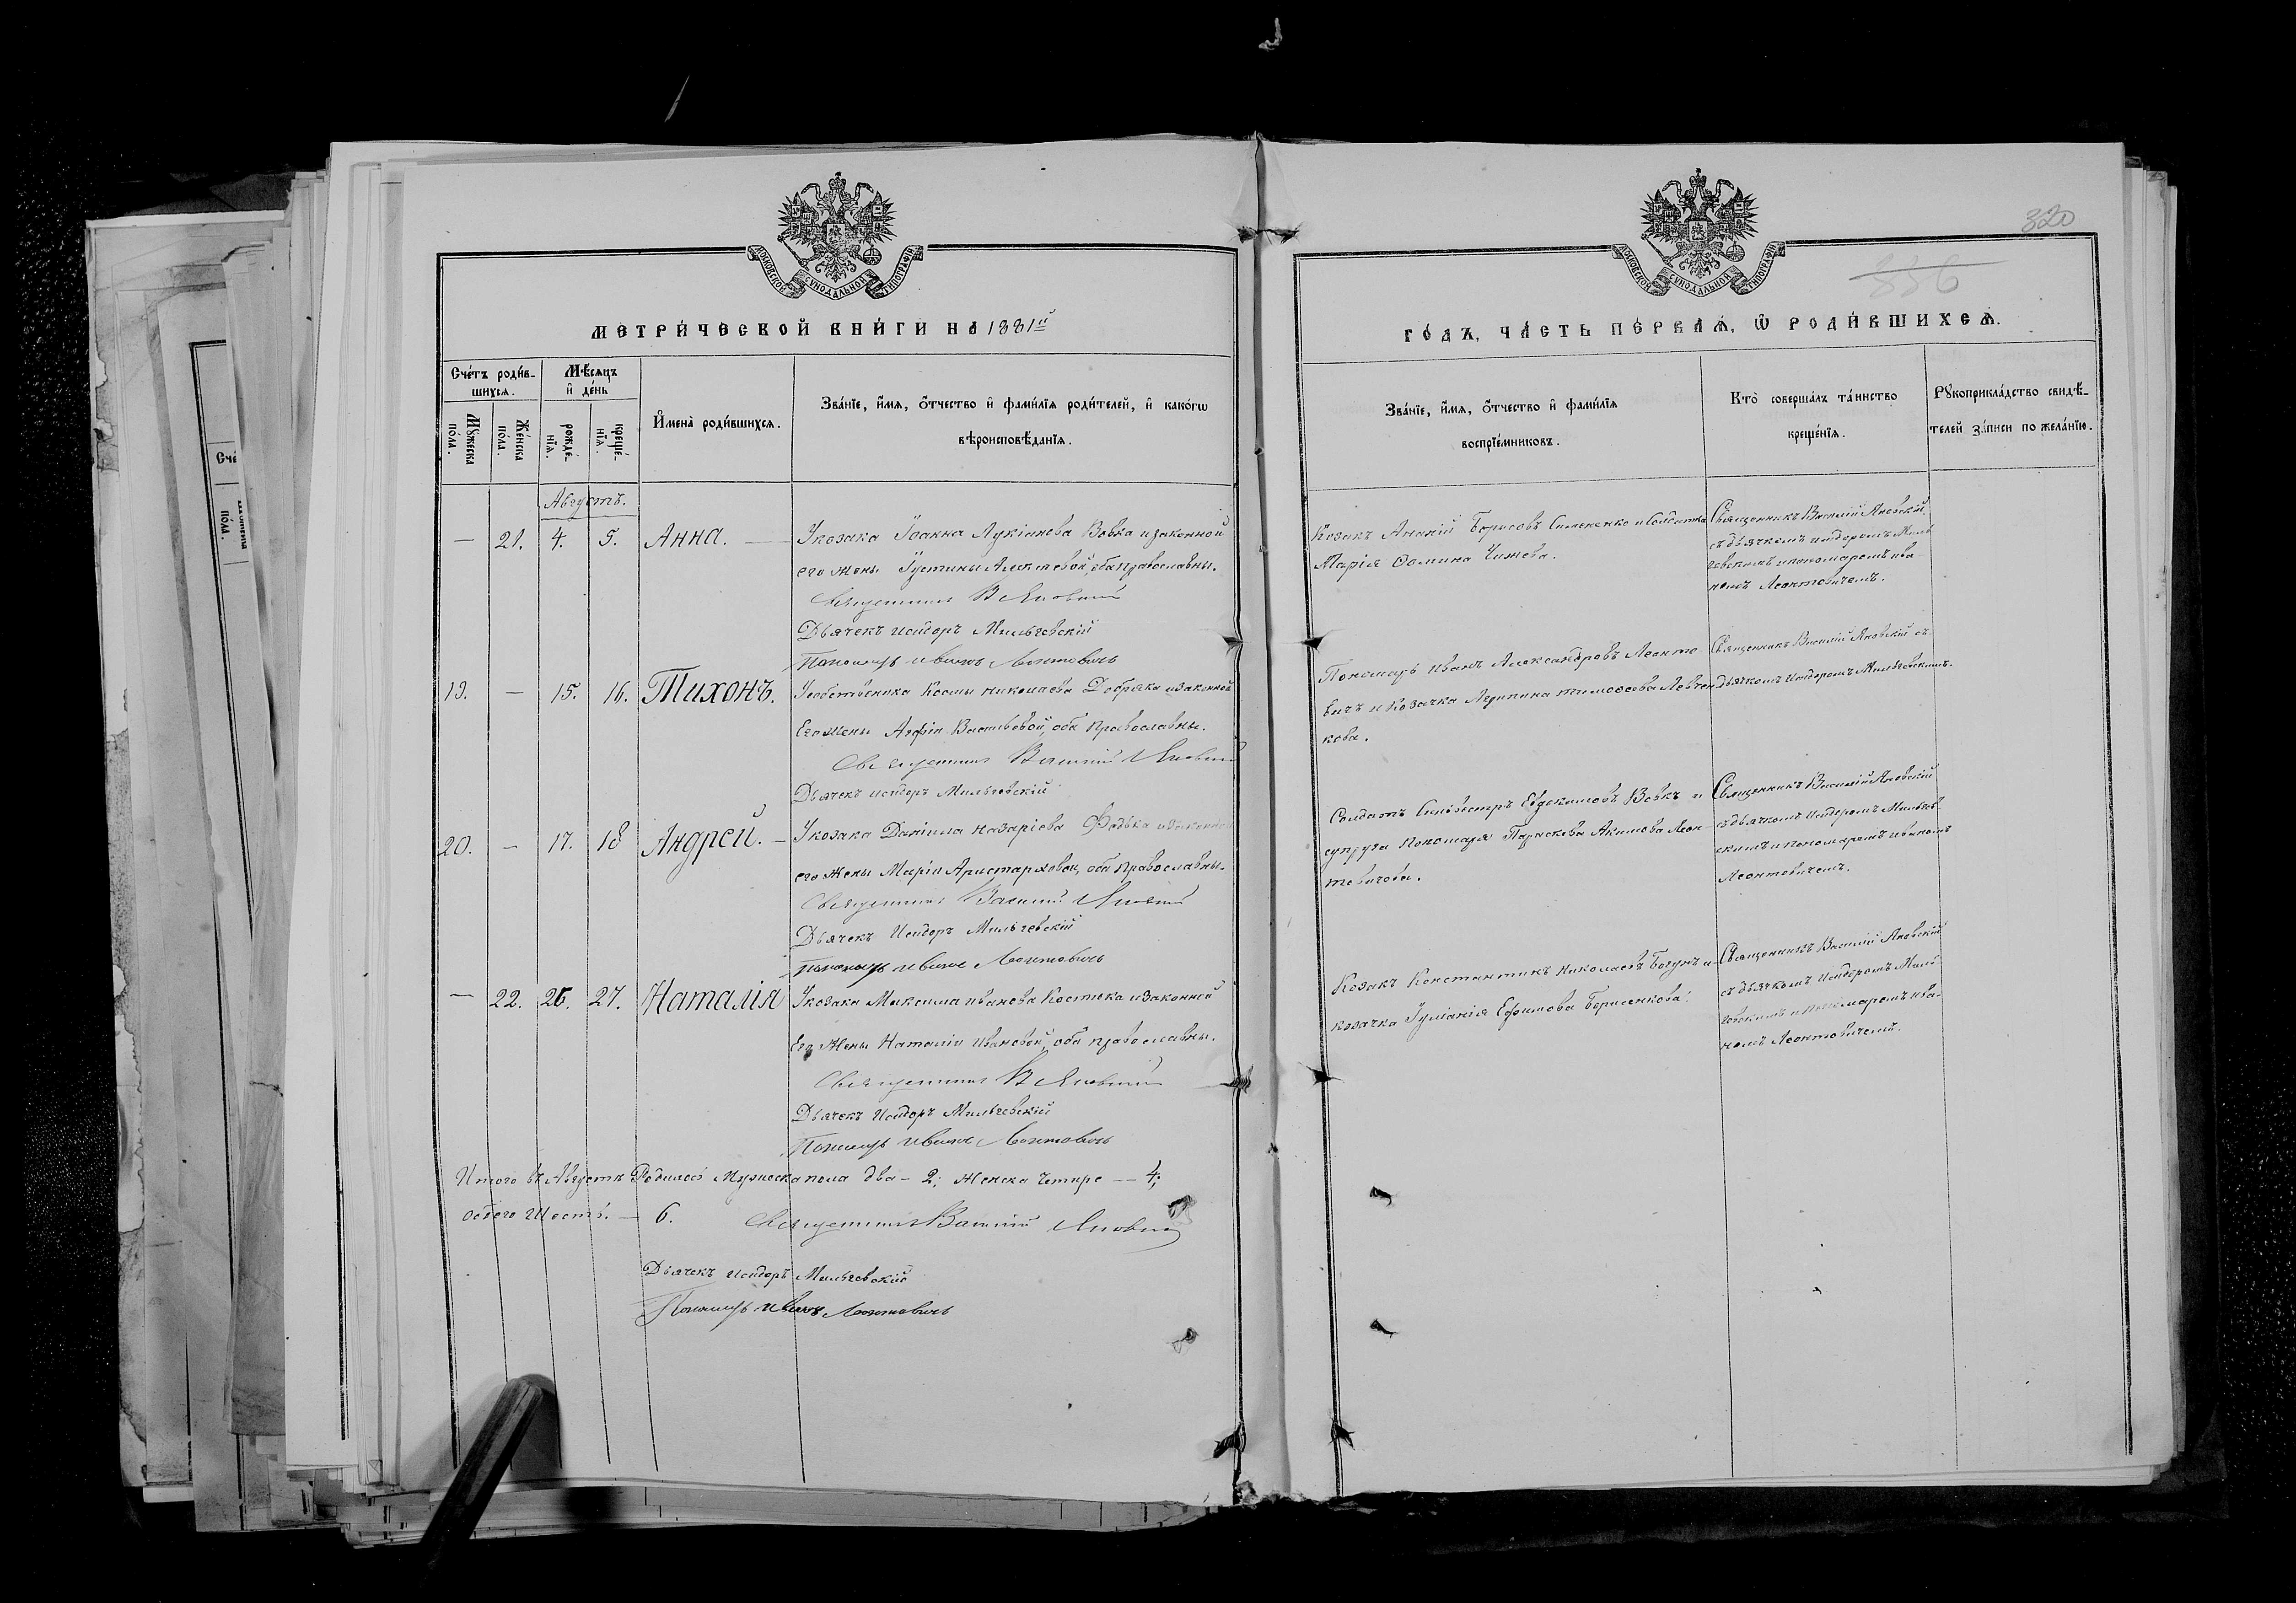 320
336
МОСКОВСКОЙ СѴНОДАЛЬНОЙ ТИПОГРАФІИ
МОСКОВСКОЙ СѴНОДАЛЬНОЙ ТИПОГРАФІИ
МЕТРИ́ЧЕСКОЙ КНИ́ГИ НА 1881й
ГО́ДЪ, ЧА́СТЬ ПЕ́РВАѦ, Ѡ РОДИ́ВШИХСѦ.
Сче́тъ роди́в-
шихсѧ.
Мѣ́сѧцъ
и҆ де́нь
Мꙋжеска
по́ла.
Же́нска
по́ла.
рожде́-
нїѧ.
креще́-
нїѧ.
И҆мена̀ роди́вшихсѧ.
Зва́нїе, и҆́мѧ, ѻ҆́тчество и҆ фами́лїѧ роди́телей, и҆ како́гѡ
вѣроисповѣ́данїѧ.
Зва́нїе, и҆́мѧ, ѻ҆́тчество и҆ фами́лїѧ
воспрїе́мниковъ.
Кто̀ соверша́лъ та́инство
креще́нїѧ.
Рꙋкоприкла́дство свидѣ́-
телей за́писи по жела́нїю.
Августъ.
— 21. 4. 5. Анна. — У козака Іоанна Лукіанова Вовка и законной
его жены Іустины Алексѣевой, оба православны.
Священникъ В Яновскій
Дьячекъ Исидоръ Мильгевскій
Пономарь Иванъ Леонтовичъ
Козакъ Ананій Борисовъ Симоненко и Солдатка
Марія Ѳомина Чижева.
Священникъ Василій Яновскій
съ дьячкомъ Исидоромъ Миль
гевскимъ и пономаремъ Ива-
номъ Леонтовичемъ.
19. — 15. 16. Тихонъ. У собственика Космы Николаева Добряка и законной
Его жены Агафіи Васильевой, оба Православны.
Священникъ Василій Яновскій
Дьячекъ Исидоръ Мильгевскій
Пономарь Иванъ Александровъ Леонто
вичъ и Козачка Агрипина Тимоѳеева Левчен
кова.
Священникъ Василій Яновскій съ
дьячкомъ Исидоромъ Мильгевскимъ.
20. — 17. 18 Андрей. — У козака Даніила Назаріева Федька и законной
его жены Маріи Аристарховой, оба Православны.
Священникъ Василій Яновскій
Дьячекъ Исидоръ Мильгевскій
Пономарь Иванъ Леонтовичъ
Солдатъ Сильвестръ Евдокимовъ Вовкъ и
супруга Пономаря Параскева Акимова Леон
товичова.
Священникъ Василій Яновскій
съ дьячкомъ Исидоромъ Мильгев
скимъ и пономаремъ Иваномъ
Леонтовичемъ.
— 22. 26. 27. Наталія У козака Максима Иванова Костюка и законной
Его Жены Наталіи Ивановой, оба православны.
Священникъ В Яновскій
Дьячекъ Исидоръ Мильгевскій
Пономарь Иванъ Леонтовичъ
Козакъ Константинъ Николаевъ Богунъ и
козачка Іуліанія Ефимова Борисенкова.
Священникъ Василій Яновскій
съ дьячкомъ Исидоромъ Миль-
гевскимъ и пономаремъ Ива-
номъ Леонтовичемъ.
Итого въ Августѣ Родилось Мужеска пола два — 2; Женска Четыре — 4;
обоего Шесть. — 6. Священникъ Василій Яновскій
Дьячекъ Исидоръ Мильгевскій
Пономарь Иванъ Леонтовичъ